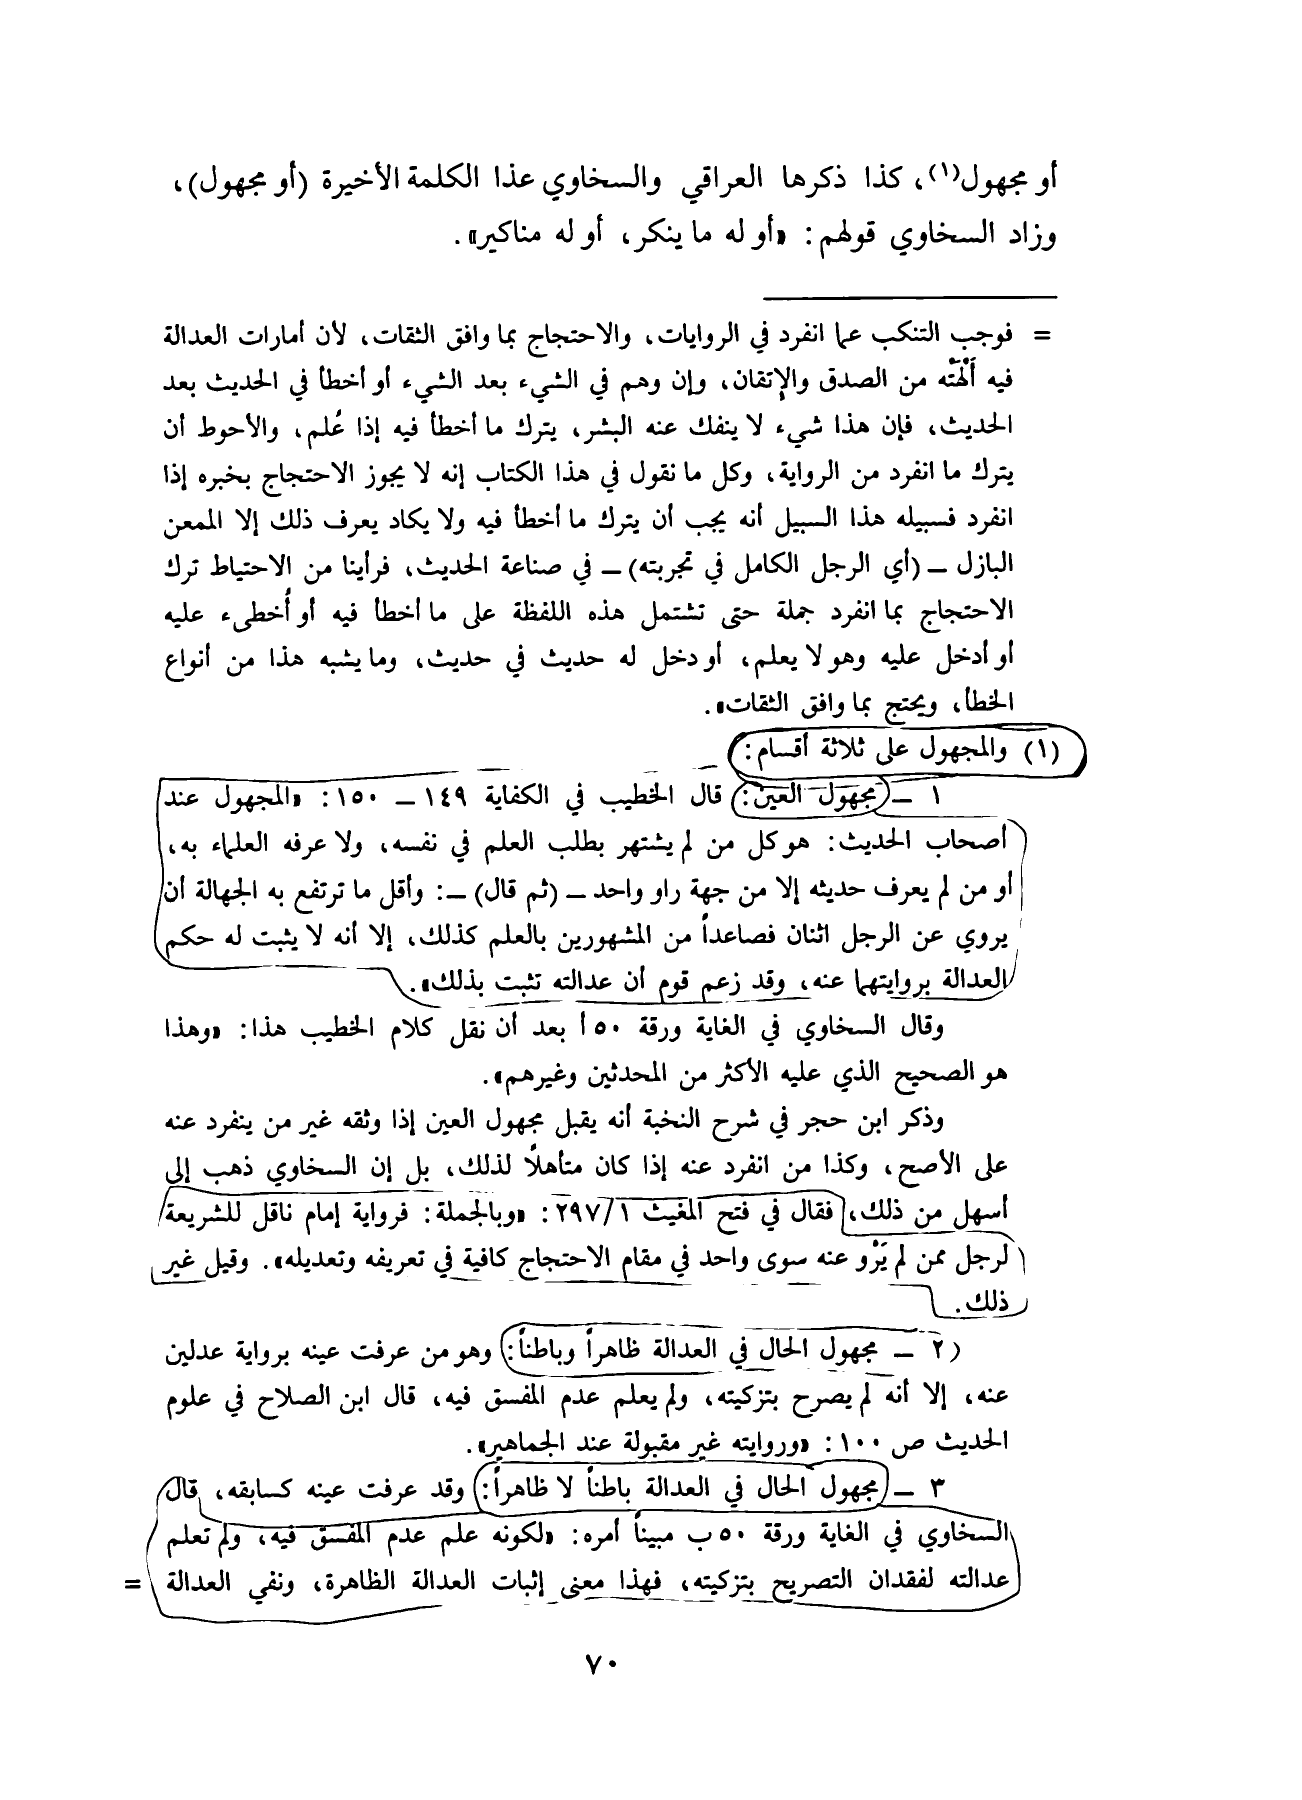 أو مجهول(١)، كذا ذكرها العراقي والسخاوي عذا الكلمة الأخيرة (أو مجهول)،
وزاد السخاوي قولهم: «أو له ما ينكر، أو له مناكير».
= فوجب التنكب عما انفرد في الروايات، والاحتجاج بما وافق الثقات، لأن أمارات العدالة
فيه ألهته من الصدق والإتقان، وإن وهم في الشيء بعد الشيء أو أخطأ في الحديث بعد
الحديث، فإن هذا شيء لا ينفك عنه البشر، يترك ما أخطأ فيه إذا عُلم، والأحوط أن
يترك ما انفرد من الرواية، وكل ما نقول في هذا الكتاب إنه لا يجوز الاحتجاج بخبره إذا
انفرد فسبيله هذا السبيل أنه يجب أن يترك ما أخطأ فيه ولا يكاد يعرف ذلك إلا الممعن
البازل ــ (أي الرجل الكامل في تجربته) ــ في صناعة الحديث، فرأينا من الاحتياط ترك
الاحتجاج بما انفرد جملة حتى تشتمل هذه اللفظة على ما أخطأ فيه أو أُخطىء عليه
أو أدخل عليه وهو لا يعلم، أو دخل له حديث في حديث، وما يشبه هذا من أنواع
الخطأ، ويحتج بما وافق الثقات».
(١) والمجهول على ثلاثة أقسام:
١ ــ مجهول العين: قال الخطيب في الكفاية ١٤٩ ــ ١٥٠: «المجهول عند
أصحاب الحديث: هو كل من لم يشتهر بطلب العلم في نفسه، ولا عرفه العلماء به،
أو من لم يعرف حديثه إلا من جهة راو واحد ــ (ثم قال) ــ: وأقل ما ترتفع به الجهالة أن
يروي عن الرجل اثنان فصاعداً من المشهورين بالعلم كذلك، إلا أنه لا يثبت له حكم
العدالة بروايتهما عنه، وقد زعم قوم أن عدالته تثبت بذلك».
وقال السخاوي في الغاية ورقة ٥٠أ بعد أن نقل كلام الخطيب هذا: «وهذا
هو الصحيح الذي عليه الأكثر من المحدثين وغيرهم».
وذكر ابن حجر في شرح النخبة أنه يقبل مجهول العين إذا وثقه غير من ينفرد عنه
على الأصح، وكذا من انفرد عنه إذا كان متأهلاً لذلك، بل إن السخاوي ذهب إلى
أسهل من ذلك، فقال في فتح المغيث ٢٩٧/١: «وبالجملة: فرواية إمام ناقل للشريعة
لرجل ممن لم يَرْو عنه سوى واحد في مقام الاحتجاج كافية في تعريفه وتعديله». وقيل غير
ذلك.
٢ ــ مجهول الحال في العدالة ظاهراً وباطناً: وهو من عرفت عينه برواية عدلين
عنه، إلا أنه لم يصرح بتزكيته، ولم يعلم عدم المفسق فيه، قال ابن الصلاح في علوم
الحديث ص ١٠٠: «وروايته غير مقبولة عند الجماهير».
٣ ــ مجهول الحال في العدالة باطناً لا ظاهراً: وقد عرفت عينه كسابقه، قال
السخاوي في الغاية ورقة ٥٠ب مبيناً أمره: «لكونه علم عدم المفسق فيه، ولم تعلم
عدالته لفقدان التصريح بتزكيته، فهذا معنى إثبات العدالة الظاهرة، ونفي العدالة =
٧٠